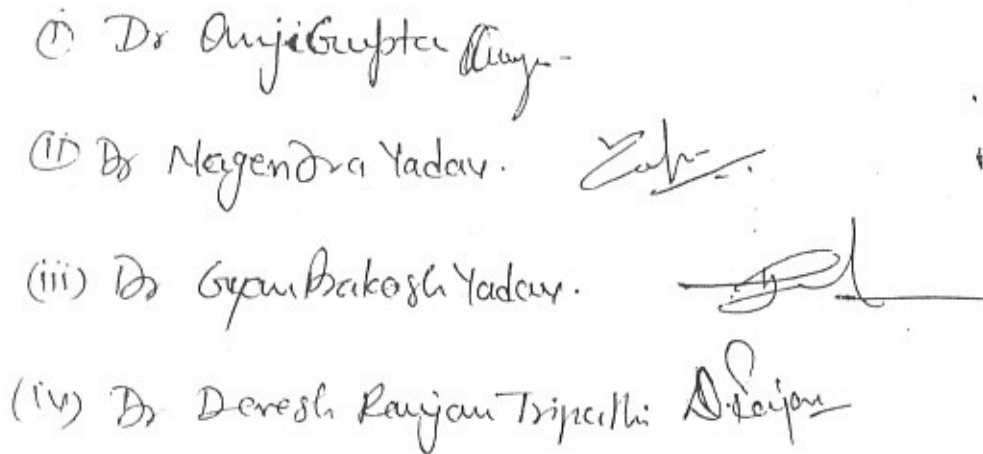 (i) Dr Anji Gupta
(ii) Dr Nagendra Yadav.
(iii) Dr Gyan Prakash Yadav.
(iv) Dr Devesh Ranjan Tripathi D. Ranjan